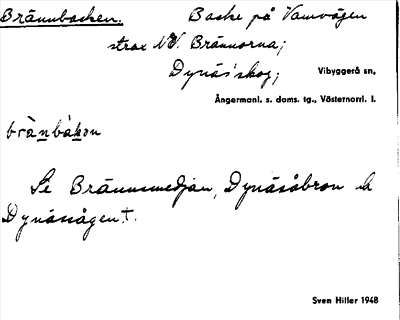 Brännbacken. Backe på Vamvägen
strax NV. Brännorna;
Dynäs' skog; Vibyggerå sn,
Ångermanl. s. doms. tg., Västernorrl. l.
brànbákən
Se Brännsmedjan, Dynäsåbron
Dynässågen
Sven Hiller 1948